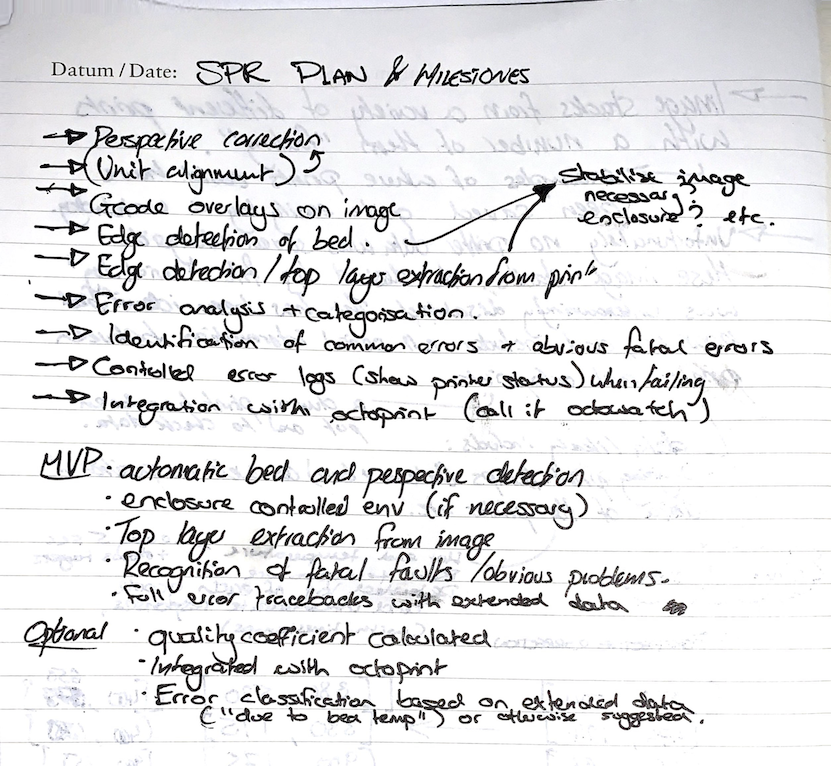 Datum / Date: SPR PLAN & MILESTONES
→ Perspective correction
→ (Unit alignment)
→ Gcode overlays on image
→ Edge detection of bed.
→ Edge detection / top layer extraction from print
Stabilise image
necessary?
enclosure? etc.
→ Error analysis + categorisation.
→ Identification of common errors + obvious fatal errors
→ Controlled error logs (show printer status) when failing
→ Integration with octoprint (call it octowatch)
MVP · automatic bed and pespective detection
· enclosure controlled env (if necessary)
· Top layer extraction from image
· Recognition of fatal faults / obvious problems.
· Full error tracebacks with extended data
Optional · quality coefficient calculated
· Integrated with octoprint
· Error classification based on extended data
("due to bed temp") or otherwise suggested.